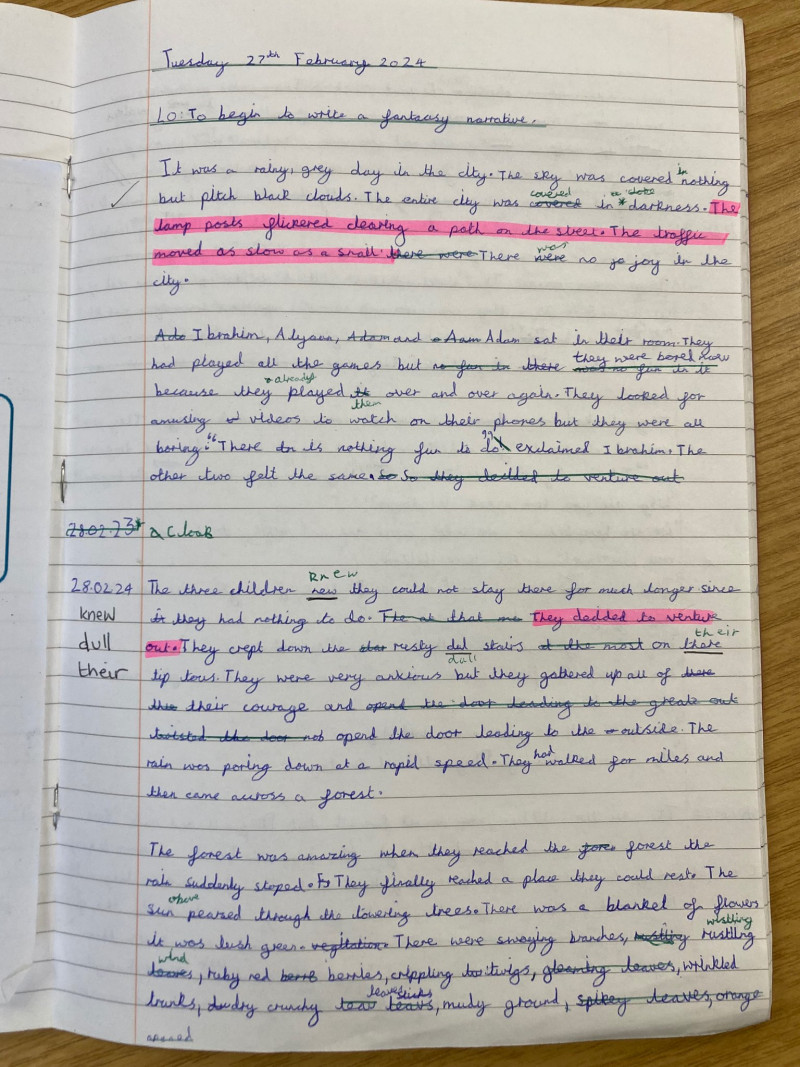 Tuesday 27th February 2024
LO: To begin to write a fantasy narrative.
It was a rainy, grey day in the city. The sky was covered in nothing
but pitch black clouds. The entire city was covered in a *darkness. The
lamp posts flickered clearing a path on the street. The traffic
moved as slow as a snail. there were There was no jo joy in the
city.
Ado Ibrahim, Alyaan, Adam and Aam Adam sat in their room. They
had played all the games but no fun in there they were bored now
because they already played them over and over again. They looked for
amusing videos to watch on their phones but they were all
boring. "There is nothing fun to do" exclaimed Ibrahim. The
other two felt the same. So So they decided to venture out
28.02.23* a cloak
28.02.24 The three children new knew they could not stay there for much longer since
knew it they had nothing to do. The at that They decided to venture
dull out. They crept down the rusty dul dull stairs at the most on thare their
their tip tous. They were very anxious but they gathered up all of there
their courage and opend the door leading to the greate out
twisted the door opend the door leading to the outside. The
rain was poring down at a rapid speed. They had walked for miles and
then came across a forest.
The forest was amazing when they reached the fore forest the
rain suddenly stoped. They finally reached a place they could rest. The
sun above pearsed through the towering trees. There was a blanket of flowers
it was lush green. vegitation. There were swaying branches, rustling wistling
wind leaves, ruby red berries, crippling twigs, gleaming leaves, wrinkled
trunks, dry crunchy leaves sticks, mudy ground, spikey leaves, orange